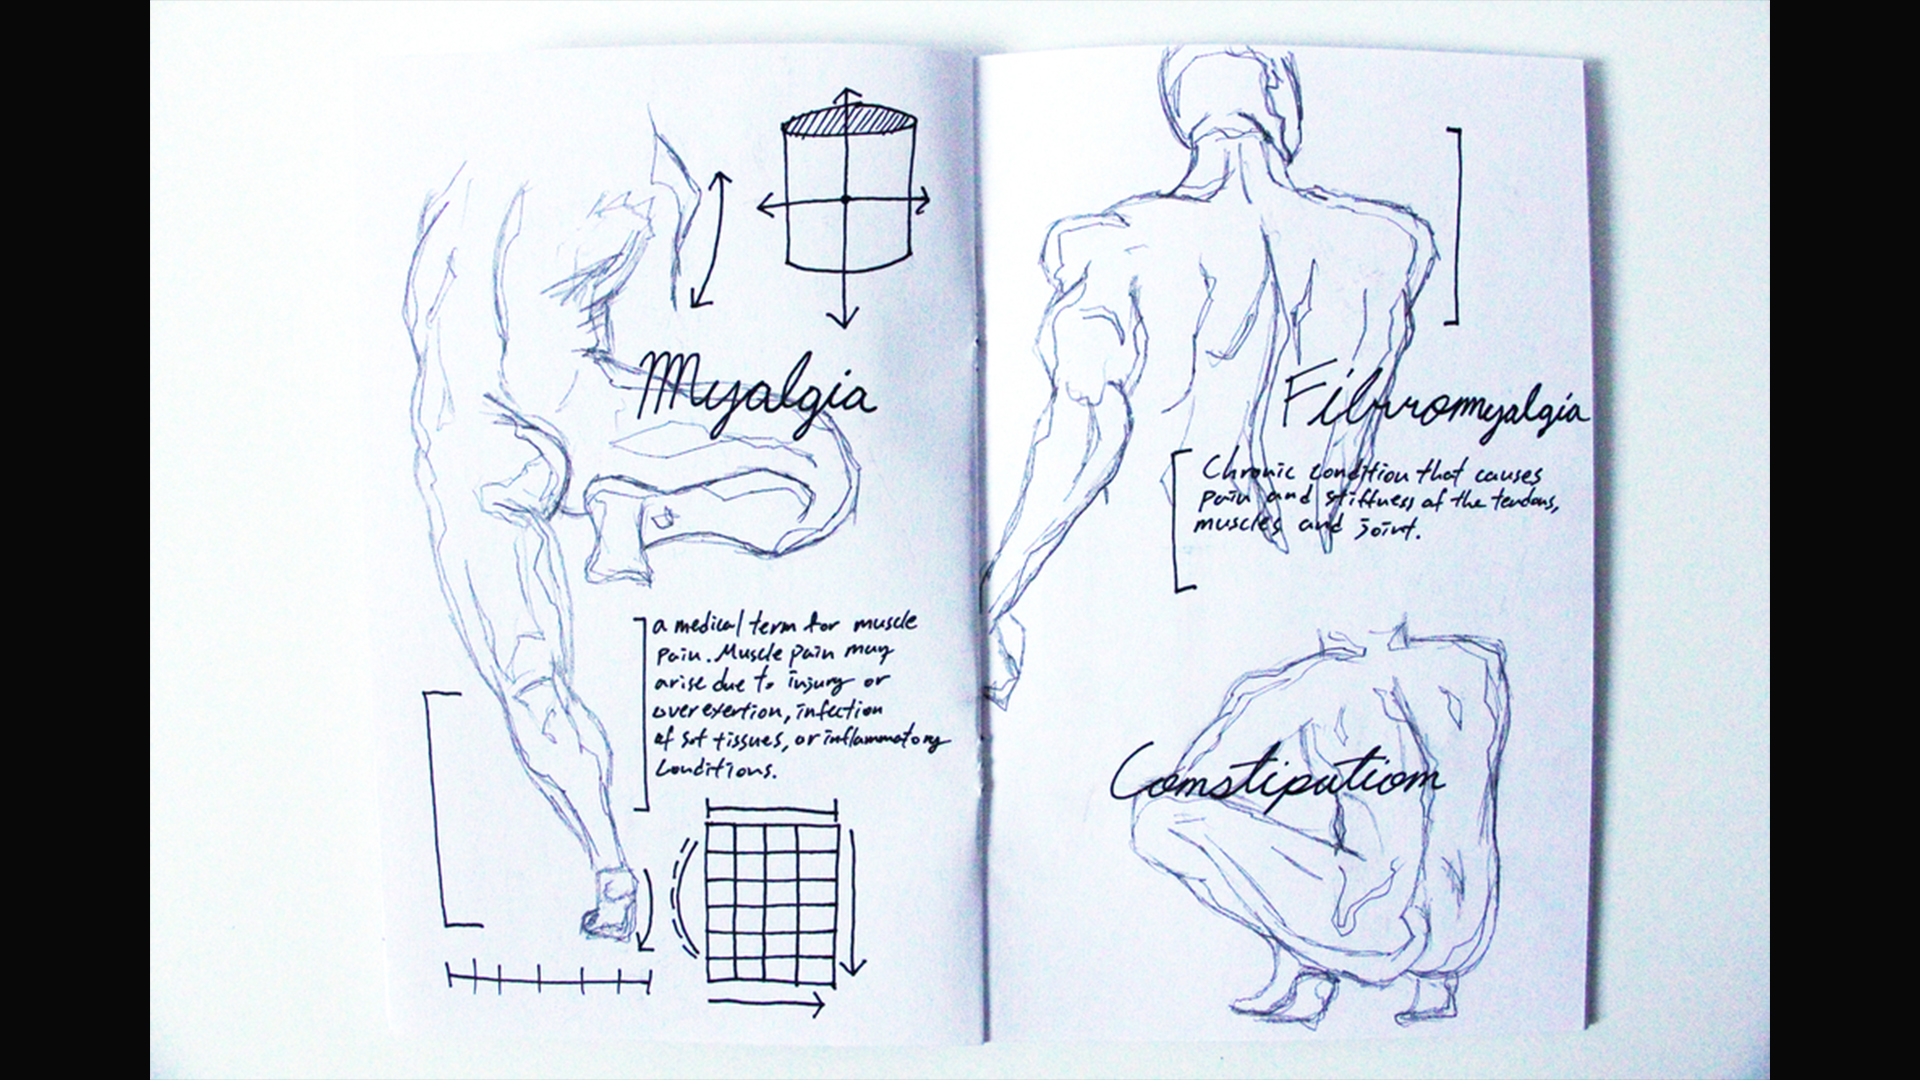 Myalgia
a medical term for muscle
pain. Muscle pain may
arise due to injury or
overexertion, infection
of sof tissues, or inflammatory
conditions.
Fibromyalgia
Chronic condition that causes
pain and stiffness of the tendons,
muscles and joint.
Constipation